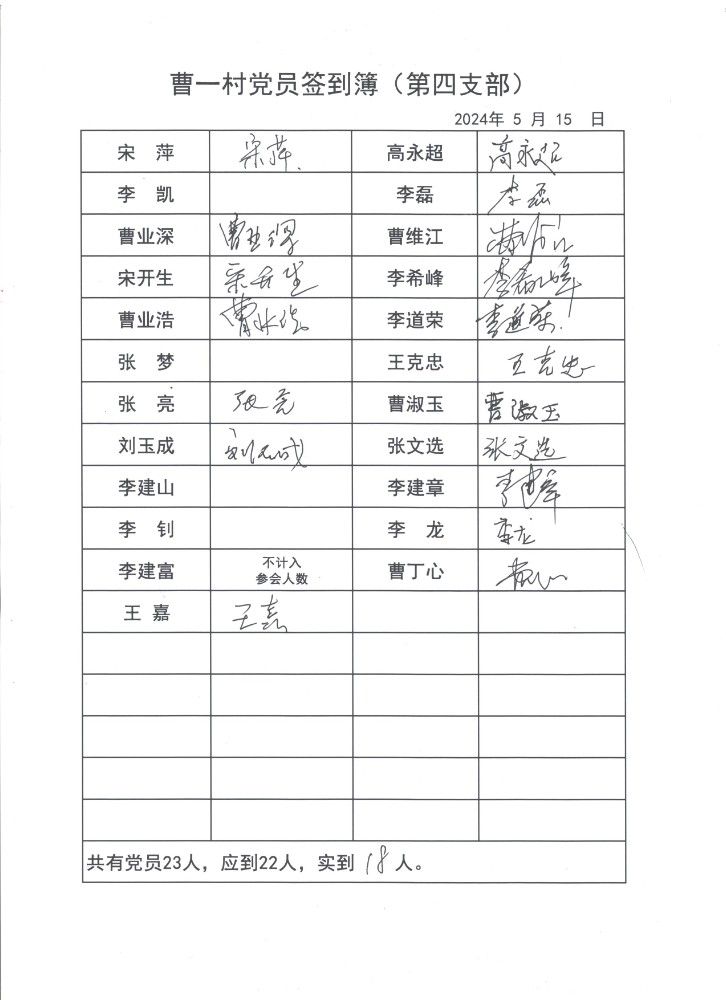 曹一村党员签到簿（第四支部）
2024年 5 月 15 日
宋 萍 宋萍 高永超 高永超
李 凯 李磊 李磊
曹业深 曹业深 曹维江 曹维江
宋开生 宋开生 李希峰 李希峰
曹业浩 曹业浩 李道荣 李道荣
张 梦 王克忠 王克忠
张 亮 张亮 曹淑玉 曹淑玉
刘玉成 刘玉成 张文选 张文选
李建山 李建章 李建章
李 钊 李 龙 李龙
李建富 不计入 曹丁心 曹丁心
参会人数
王 嘉 王嘉
共有党员23人，应到22人，实到 18 人。